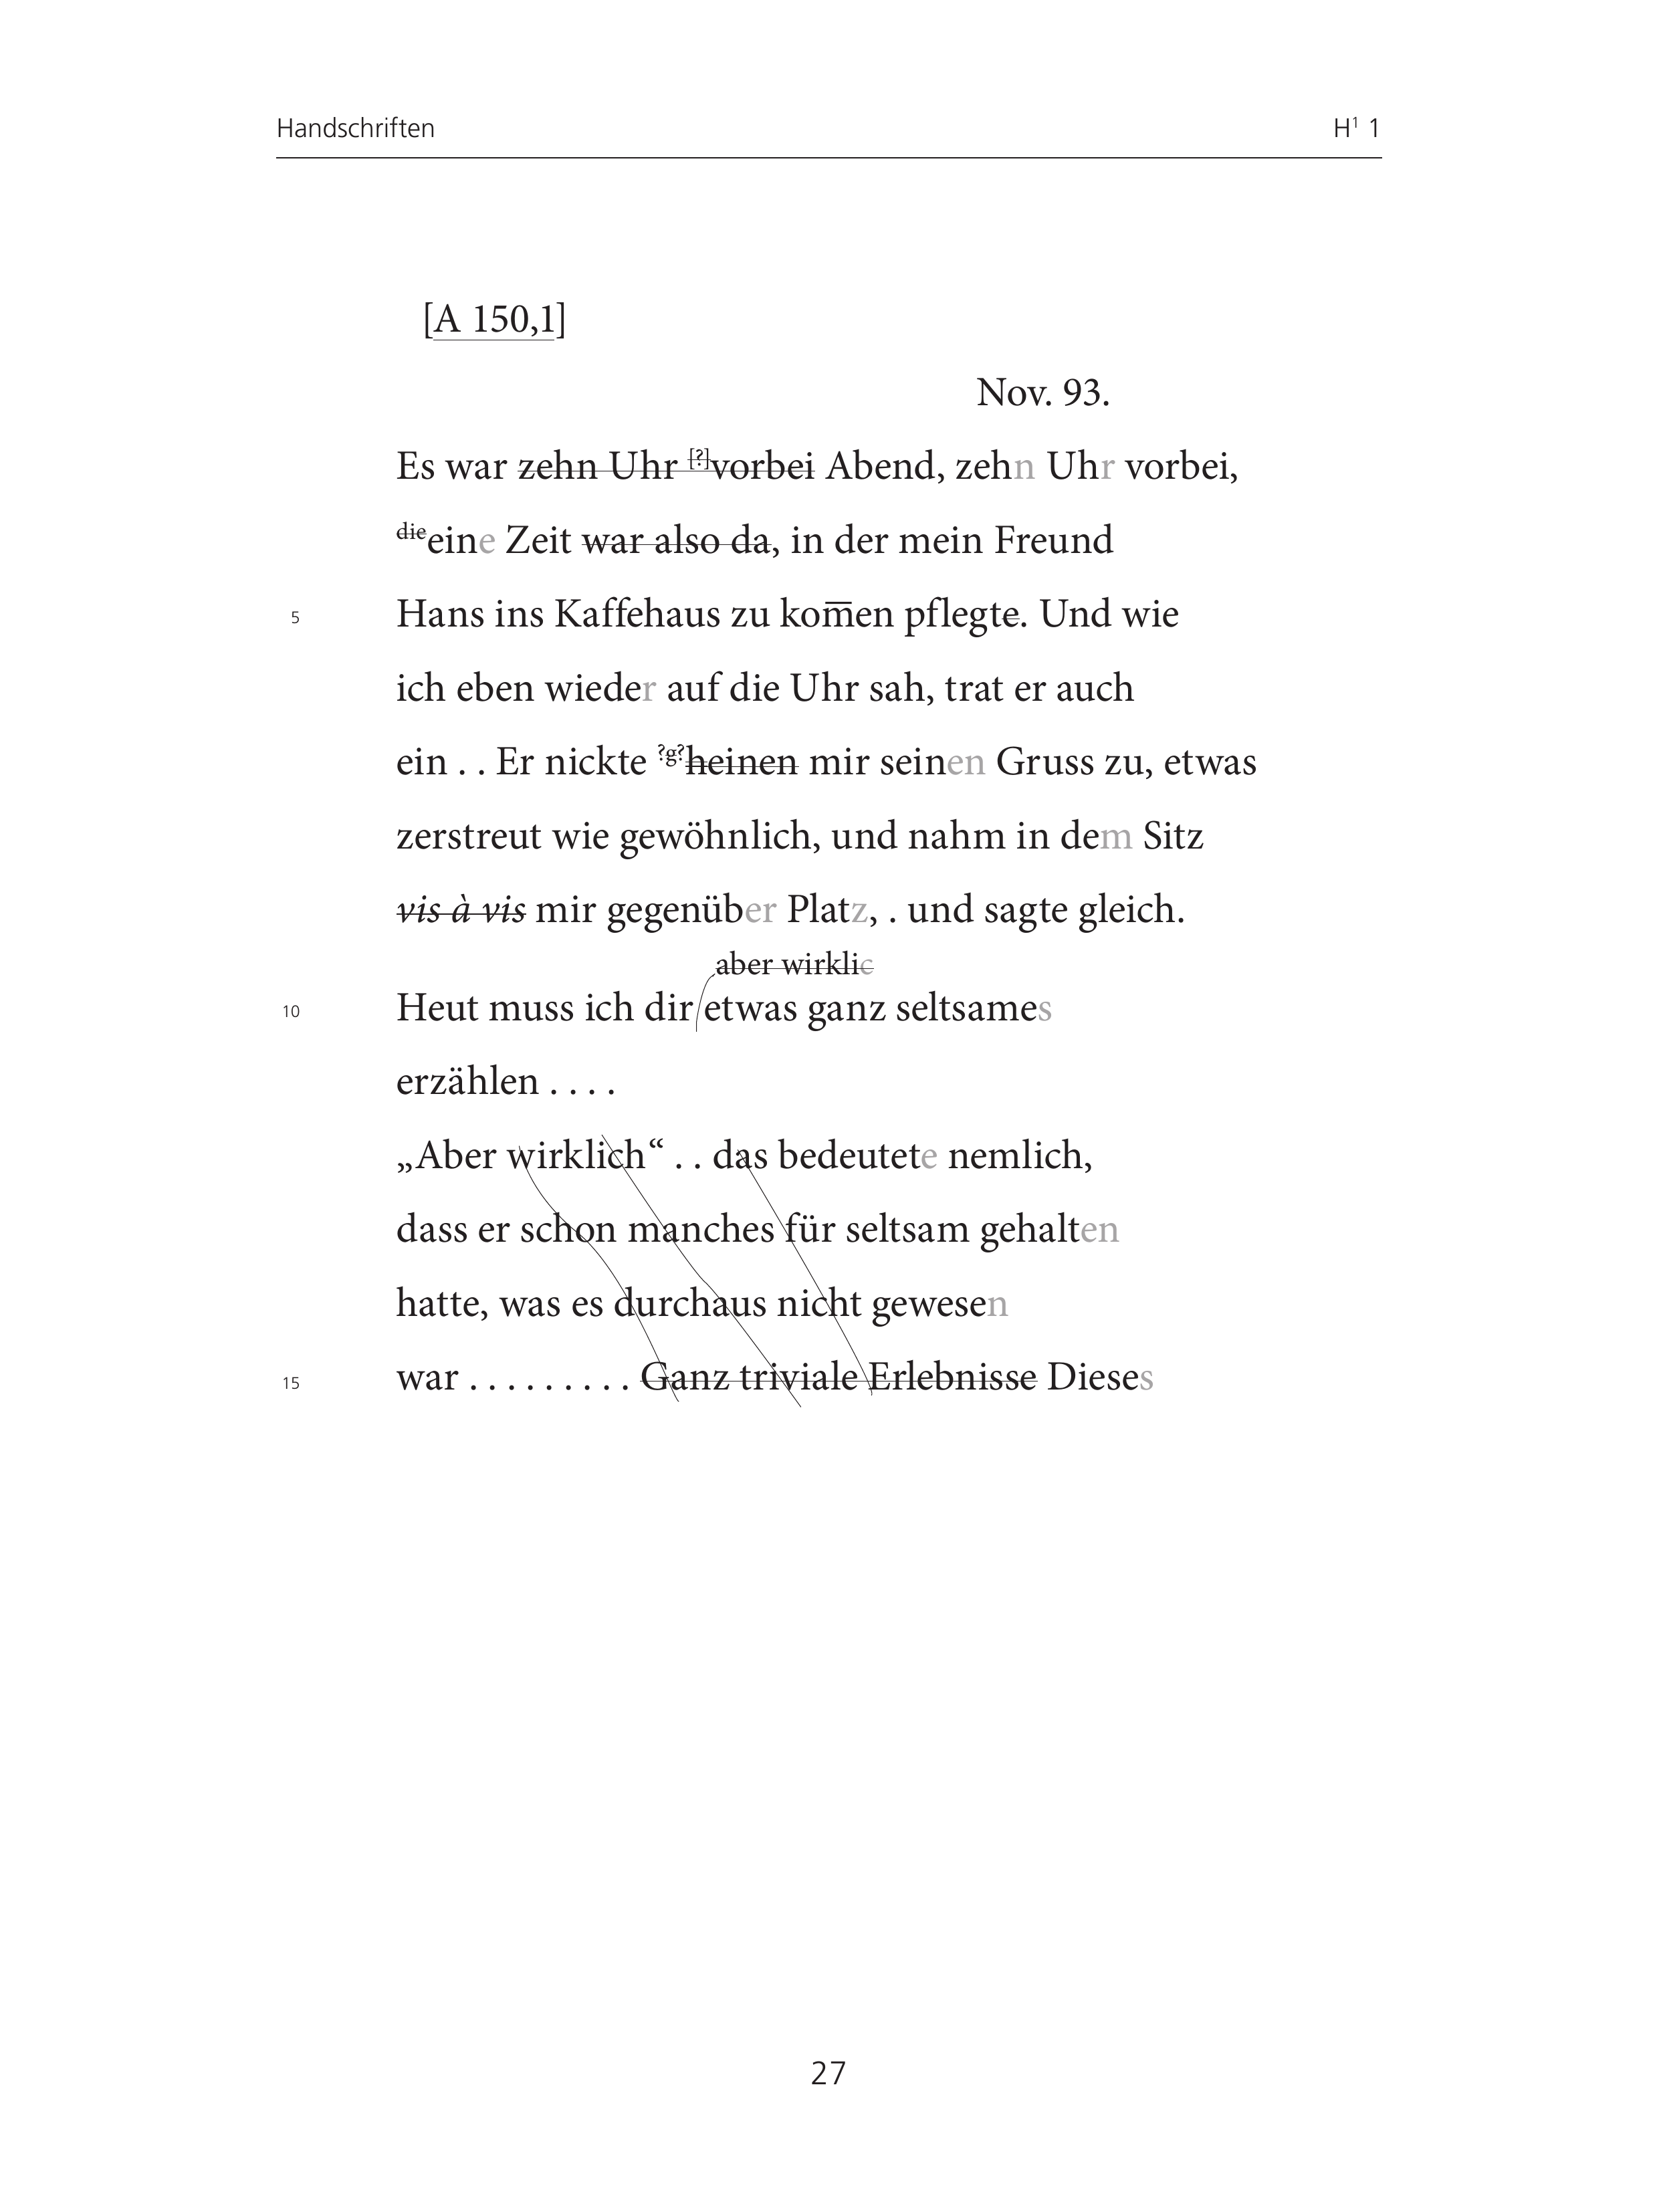 Handschriften H¹ 1
[A 150,1]
Nov. 93.
Es war zehn Uhr [?]vorbei Abend, zehn Uhr vorbei,
dieeine Zeit war also da, in der mein Freund
5 Hans ins Kaffehaus zu kom̅en pflegte. Und wie
ich eben wieder auf die Uhr sah, trat er auch
ein . . Er nickte ?g?heinen mir seinen Gruss zu, etwas
zerstreut wie gewöhnlich, und nahm in dem Sitz
vis à vis mir gegenüber Platz, . und sagte gleich.
aber wirklic
10 Heut muss ich dir etwas ganz seltsames
erzählen . . . .
„Aber wirklich“ . . das bedeutete nemlich,
dass er schon manches für seltsam gehalten
hatte, was es durchaus nicht gewesen
15 war . . . . . . . . . Ganz triviale Erlebnisse Dieses
27